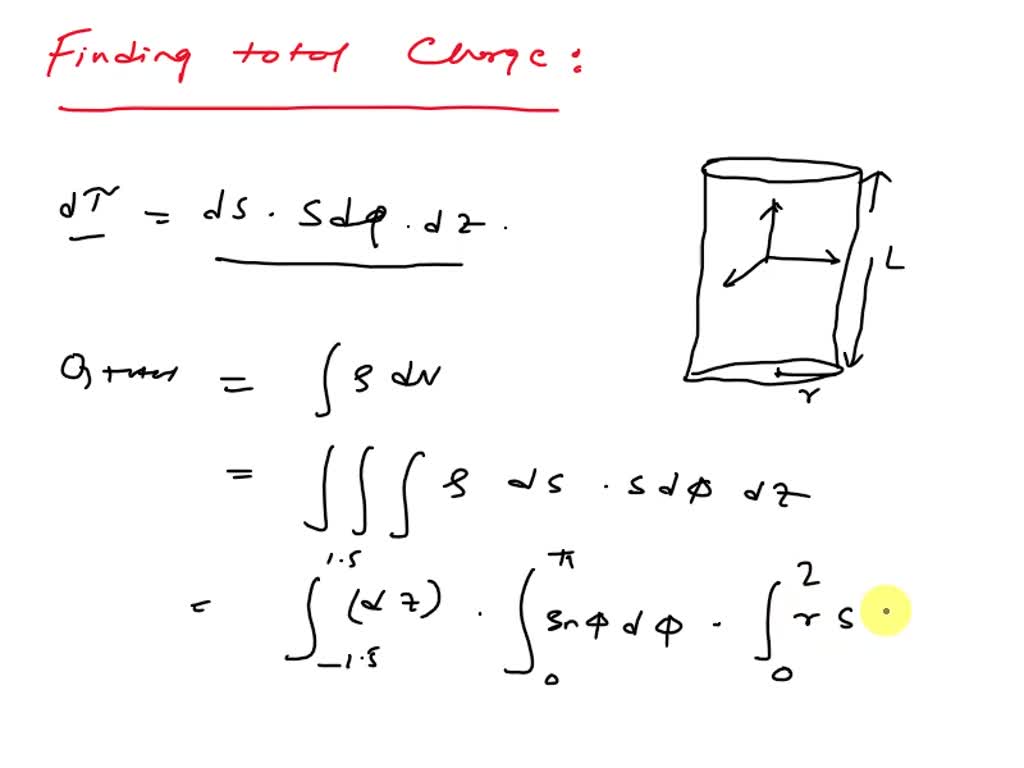 Finding total Charge:
dτ = ds · s dφ · dz ·
L
Q total = ∫ ρ dv
r
= ∫∫∫ ρ ds · s dφ dz
= ∫_{-1.5}^{1.5} (dz) · ∫_0^π sin φ dφ · ∫_0^2 r s